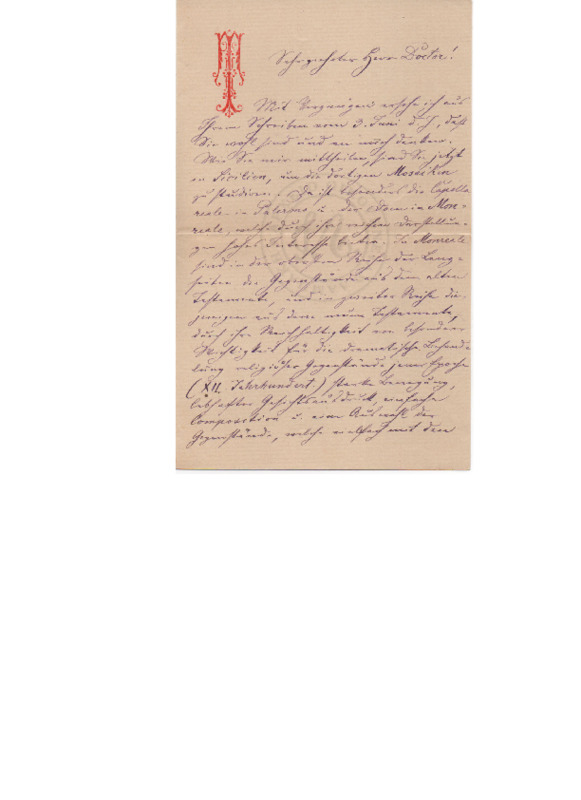 Sehr geehrter Herr Doctor!
Mit Vergnügen ersehe ich aus
Ihrem Schreiben vom 3. Juni d. J., daß
Sie wohl sind und an mich denken.
Wie Sie mir mittheilen, sind Sie jetzt
in Sicilien, um die dortigen Mosaiken
zu studiren. Da ist besonders die Capella
reale in Palermo u. der Dom in Mon-
reale, welche durch ihre reichen Darstellun-
gen hohes Interesse bieten. In Monreale
sind in der obersten Reihe der Lang-
seiten die Gegenstände aus dem alten
Testamente, und in zweiter Reihe die-
jenigen aus dem neuen Testamente,
durch ihre Reichhaltigkeit von besonderer
Wichtigkeit für die dramatische Behand-
lung religiöser Gegenstände jener Epoche
(XII. Jahrhundert.) starke Bewegung,
lebhafter Gesichtsausdruck, einfache
Composition u. eine Auswahl der
Gegenstände, welche vielfach mit dem